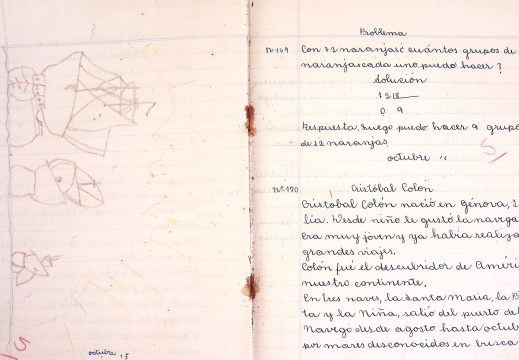 Problema
Nº 169 Con 72 naranjas ¿ cuántos grupos de
naranjas cada uno puedo hacer ?
Solución
72 |8
0 9
Respuesta. Luego puedo hacer 9 grupo
de 12 naranjas
5
octubre "
Nº 170 Cristóbal Colón
Cristobal Colón nació en Génova, I
lia. Desde niño le gustó la navega
Era muy joven y ya había realiza
grandes viajes.
Colón fué el descubridor de Améri
nuestro continente.
En tres naves, la Santa María, la Pi
ta y la Niña, salió del puerto de
Navego desde agosto hasta octub
por mares desconocidos en busca
5
octubre 15